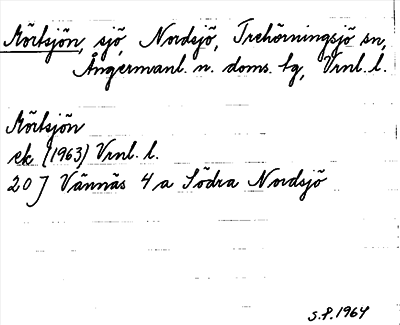 Mörtsjön, sjö, Nordsjö, Trehörningsjö sn,
Ångermanl. n. doms. tg, Vrnl. l.
Mörtsjön
ek (1963) Vrnl. l.
20 J Vännäs 4 a Södra Nordsjö
S.P. 1964